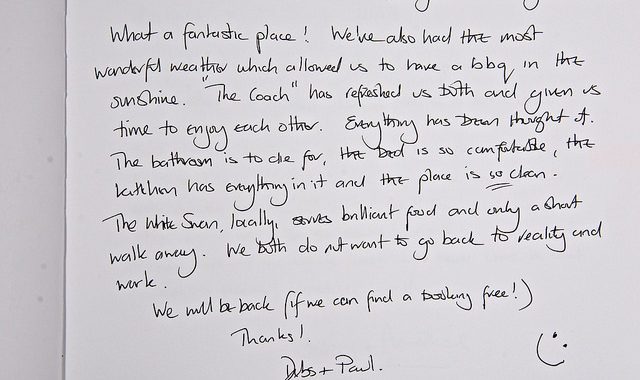 What a fantastic place! We've also had the most
wonderful weather which allowed us to have a bbq in the
sunshine. "The Coach" has refreshed us both and given us
time to enjoy each other. Everything has been thought of.
The bathroom is to die for, the bed is so comfortable, the
kitchen has everything in it and the place is so clean.
The White Swan, locally, serves brilliant food and only a short
walk away. We both do not want to go back to reality and
work.
We will be back (if we can find a booking free!)
Thanks!
Debs + Paul.